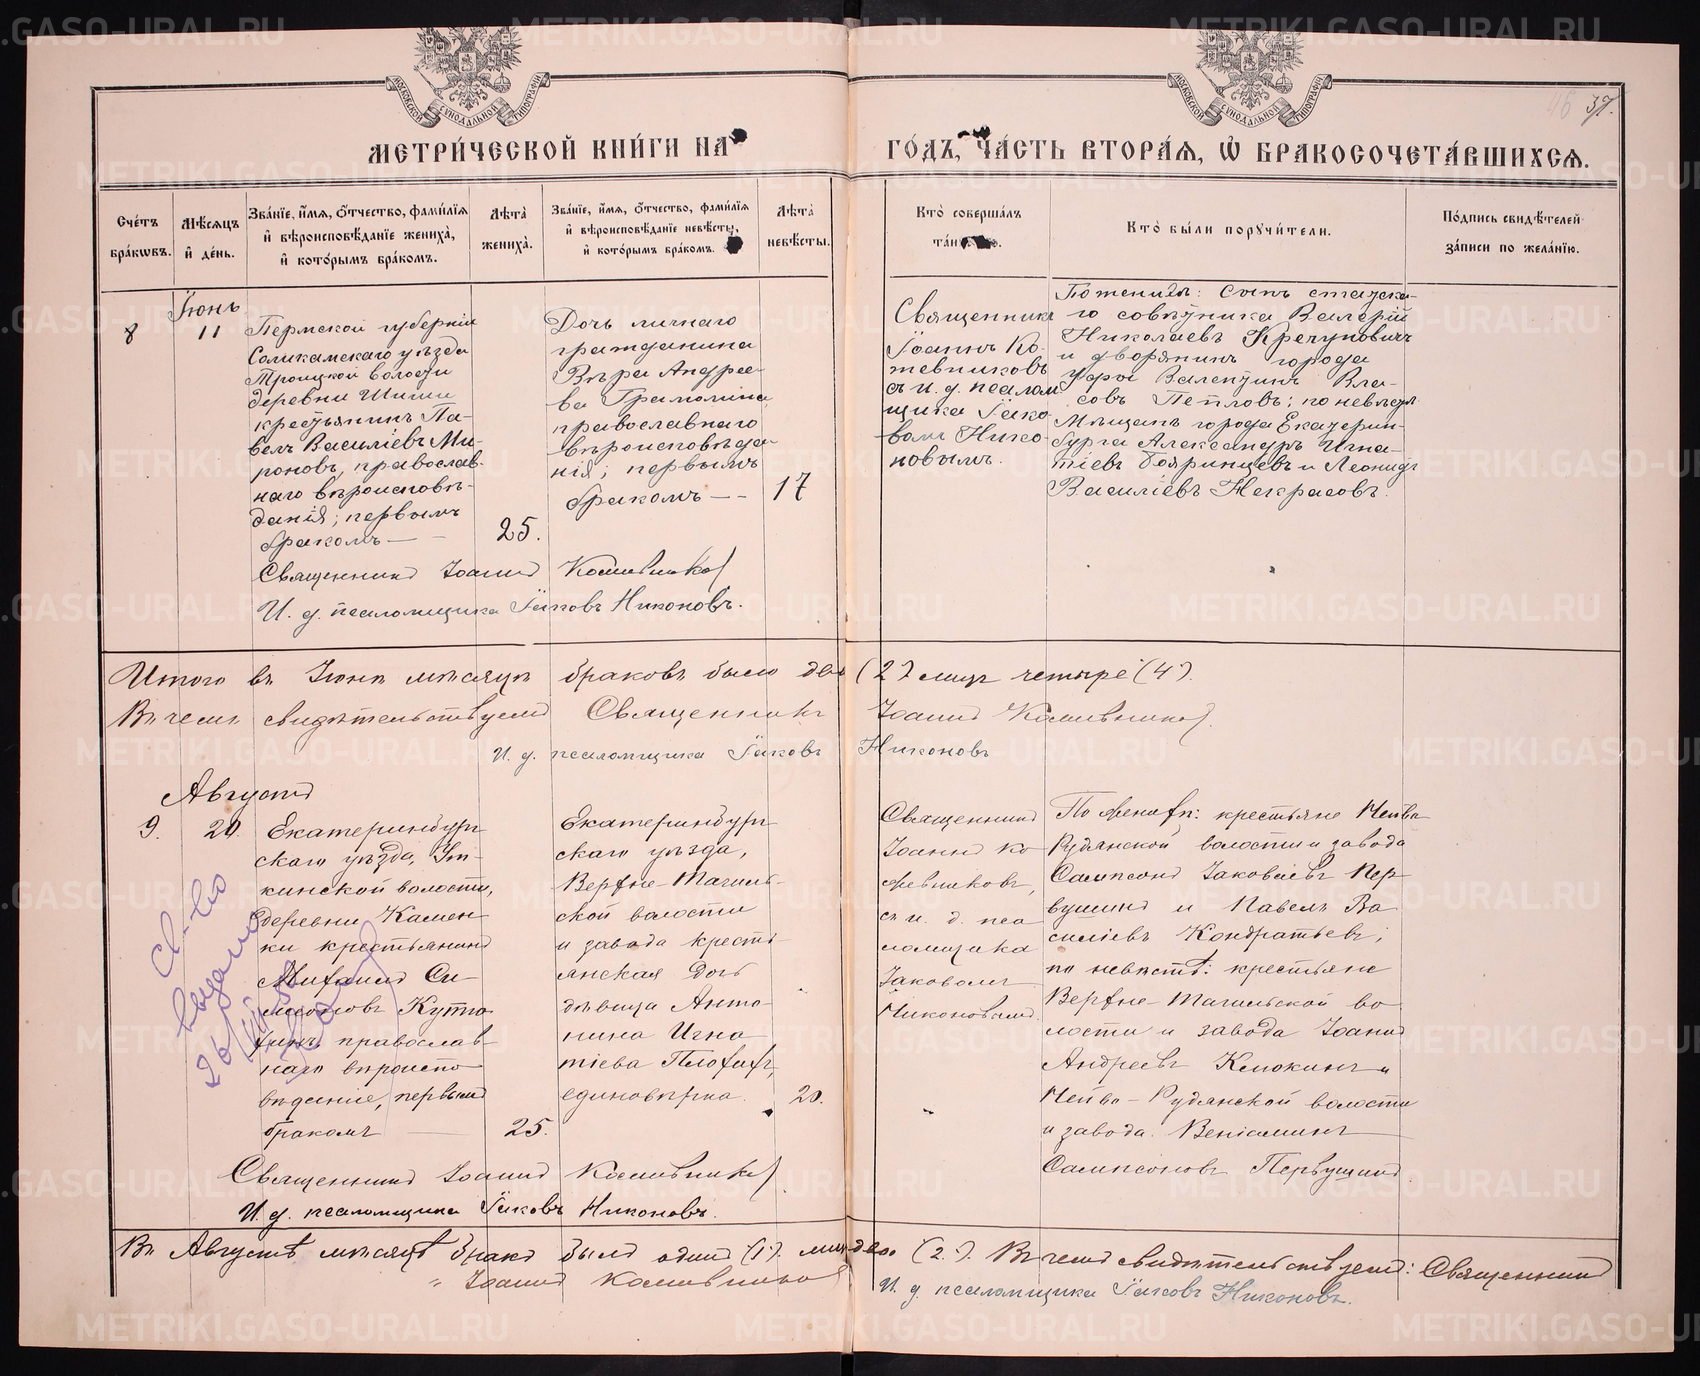 46 37.
МЕТРИ́ЧЕСКОЙ КНИ́ГИ НА ГО́ДЪ, ЧА́СТЬ ВТОРА́Я, Ѡ БРАКОСОЧЕТА́ВШИХСЯ.
Сче́тъ бра́кѡвъ.
Мѣ́сяцъ и҆ де́нь.
Зва́нїе, и҆́мя, ѻ҆́тчество, фами́лїя и҆ вѣроисповѣ́данїе жениха̀, и҆ кото́рымъ бра́комъ.
Лѣта̀ жениха̀.
Зва́нїе, и҆́мя, ѻ҆́тчество, фами́лїя и҆ вѣроисповѣ́данїе невѣ́сты, и҆ кото́рымъ бра́комъ.
Лѣта̀ невѣ́сты.
Кто̀ соверша́лъ
Кто̀ бы́ли порꙋчи́тели.
По́дпись свидѣ́телей за́писи по жела́нїю.
Іюнь
8
11
Пермской губерніи
Соликамскаго уѣзда
Троицкой волости
деревни Шиши
крестьянинъ Па-
велъ Василіевъ Ми-
роновъ, православ-
наго вѣроисповѣ-
данія; первымъ
бракомъ
25.
Дочь личнаго
гражданина
Вѣра Андрее-
ва Грамолина,
православнаго
вѣроисповѣда-
нія; первымъ
бракомъ
17
Священникъ
Іоаннъ Ко-
жевниковъ
съ и. д. псалом
щика Іако-
вомъ Нико-
новымъ.
По женихѣ: Сынъ статска-
го совѣтника Валерій
Николаевъ Кречуновичъ
и дворянинъ города
Уфы Валентинъ Вла-
совъ Пепловъ; по невѣстѣ
Мѣщане города Екатерин-
бурга Александръ Игна-
тіевъ Бояринцевъ и Леонидъ
Василіевъ Некрасовъ.
Священникъ Іоаннъ Кожевниковъ
И. д. псаломщика Іаковъ Никоновъ.
Итого въ Іюнѣ мѣсяцѣ браковъ было два (2) лицъ четыре (4).
Въ чемъ свидѣтельствуемъ Священникъ Іоаннъ Кожевниковъ.
И. д. псаломщика Іаковъ Никоновъ
Августъ
9.
20.
Екатеринбург-
скаго уѣзда, Ут-
кинской волости,
деревни Камен
ки крестьянинъ
Михаилъ Си-
меоновъ Кутю
хинъ православ-
наго вѣроиспо
вѣданіе, первымъ
бракомъ
25.
Екатеринбург-
скаго уѣзда,
Верхне-Тагиль-
ской волости
и завода кресть-
янская дочь
дѣвица Анто-
нина Игна
тіева Плохихъ,
единовѣрка.
20.
Священникъ
Іоаннъ Ко
жевниковъ,
съ и. д. пса
ломщика
Іаковомъ
Никоновымъ.
По женихѣ: крестьяне Нейво
Рудянской волости и завода
Сампсонъ Іаковлевъ Пер
вушинъ и Павелъ Ва
силіевъ Кондратьевъ;
по невѣстѣ: крестьяне
Верхне-Тагильской во
лости и завода Іоаннъ
Андреевъ Клюкинъ и
Нейво-Рудянской волости
и завода Веніаминъ
Сампсоновъ Первушинъ.
Св-во
выдано
Священникъ Іоаннъ Кожевниковъ
И. д. псаломщика Іаковъ Никоновъ.
Въ Августѣ мѣсяцѣ бракъ былъ одинъ (1). лицъ два (2.). Въ чемъ свидѣтельствуемъ: Священникъ
Іоаннъ Кожевниковъ
И. д. псаломщика Іаковъ Никоновъ.
METRIKI.GASO-URAL.RU